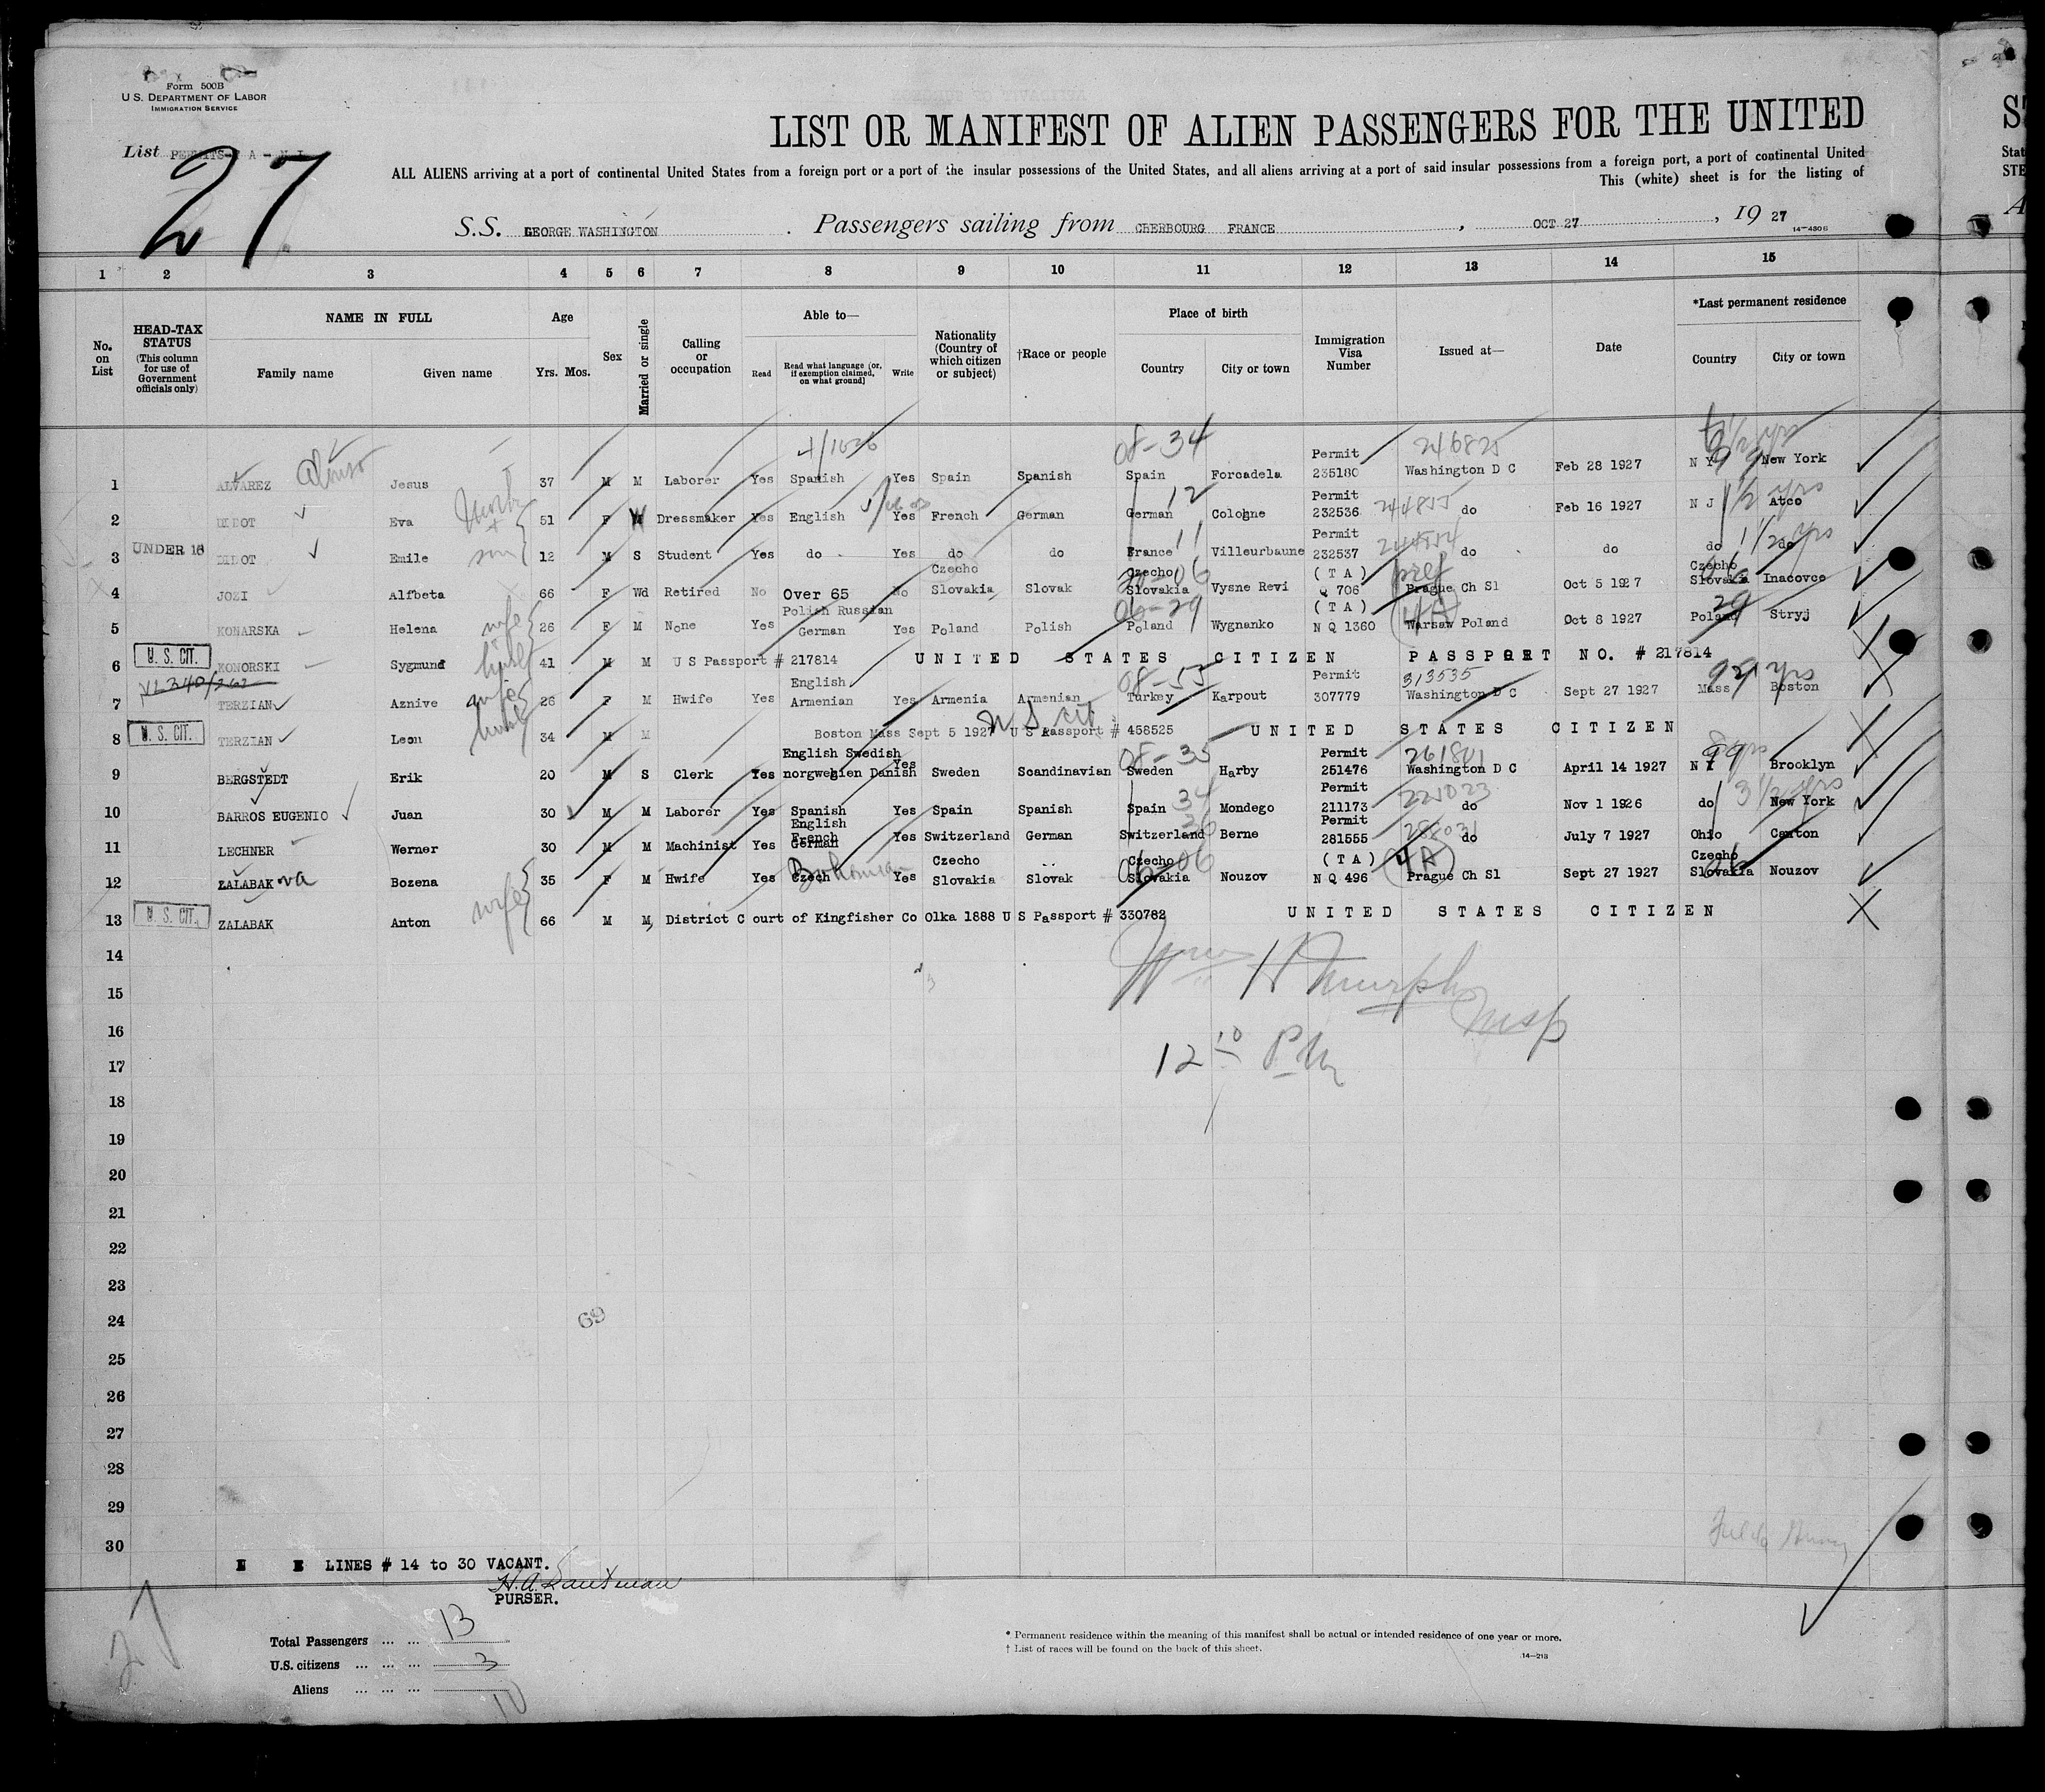 Form 500B
U. S. DEPARTMENT OF LABOR
IMMIGRATION SERVICE
List
27
LIST OR MANIFEST OF ALIEN PASSENGERS FOR THE UNITED
ALL ALIENS arriving at a port of continental United States from a foreign port or a port of the insular possessions of the United States, and all aliens arriving at a port of said insular possessions from a foreign port, a port of continental United
This (white) sheet is for the listing of
S.S. GEORGE WASHINGTON . Passengers sailing from CHERBOURG FRANCE , OCT 27 , 19 27
14-4806
1 2 3 4 5 6 7 8 9 10 11 12 13 14 15
No. on List
HEAD-TAX STATUS (This column for use of Government officials only)
NAME IN FULL Family name Given name
Age Yrs. Mos.
Sex
Married or single
Calling or occupation
Able to— Read Read what language (or, if exemption claimed, on what ground) Write
Nationality (Country of which citizen or subject)
†Race or people
Place of birth Country City or town
Immigration Visa Number
Issued at—
Date
*Last permanent residence Country City or town
1 ALVAREZ Alonso Jesus 37 M M Laborer Yes Spanish Yes Spain Spanish 08-34 Spain Forcadela Permit 235180 246825 Washington D C Feb 28 1927 N Y New York
2 DIDOT Eva 51 F M Dressmaker Yes English Yes French German 12 German Cologne Permit 232536 244855 do Feb 16 1927 N J Atco
3 UNDER 16 DIDOT son Emile 12 M S Student Yes do Yes do do 11 France Villeurbaune Permit 232537 do do do do
4 JOZI Alfbeta 66 F Wd Retired No Over 65 No Czecho Slovakia Slovak Czecho Slovakia Vysne Revi (TA) Q 706 pref Prague Ch Sl Oct 5 1927 Czecho Slovakia Inacovce
5 KONARSKA Helena wife 26 F M None Yes Polish Russian German Yes Poland Polish 06-29 Poland Wygnanko (TA) N Q 1360 (4A) Warsaw Poland Oct 8 1927 29 Poland Stryj
6 U. S. CIT. KONORSKI Sygmund 41 M M U S Passport # 217814 UNITED STATES CITIZEN PASSPORT NO. # 217814
7 TERZIAN Aznive wife 26 F M Hwife Yes English Armenian Yes Armenia Armenian 08-55 Turkey Karpout Permit 307779 313535 Washington D C Sept 27 1927 Mass Boston
8 U. S. CIT. TERZIAN Leon husb 34 M M Boston Mass Sept 5 1927 U S Passport # 458525 U S cit UNITED STATES CITIZEN
9 BERGSTEDT Erik 20 M S Clerk Yes English Swedish norwegien Danish Yes Sweden Scandinavian 08-35 Sweden Harby Permit 251476 261801 Washington D C April 14 1927 N Y Brooklyn
10 BARROS EUGENIO Juan 30 M M Laborer Yes Spanish Yes Spain Spanish Spain 34 Mondego Permit 211173 221023 do Nov 1 1926 do 3 1/2 yrs New York
11 LECHNER Werner 30 M M Machinist Yes English French German Yes Switzerland German Switzerland 36 Berne Permit 281555 288031 do July 7 1927 Ohio Canton
12 ZALABAK va Bozena 35 F M Hwife Yes Czech Bohemian Yes Czecho Slovakia Slovak Czecho Slovakia 06-06 Nouzov (TA) N Q 496 (4A) Prague Ch Sl Sept 27 1927 Czecho Slovakia 06 Nouzov
13 U. S. CIT. ZALABAK Anton wife 66 M M, District Court of Kingfisher Co Olka 1888 U S Passport # 330782 UNITED STATES CITIZEN
14
Wm H Murphy
15
Insp
16
12 10 PM
17
18
19
20
21
22
23
24
69
25
26
27
28
29
30
LINES # 14 to 30 VACANT.
PURSER.
27
Total Passengers ... ... 13
U.S. citizens ... ... ... 3
Aliens ... ... ... 10
* Permanent residence within the meaning of this manifest shall be actual or intended residence of one year or more.
† List of races will be found on the back of this sheet.
14-213